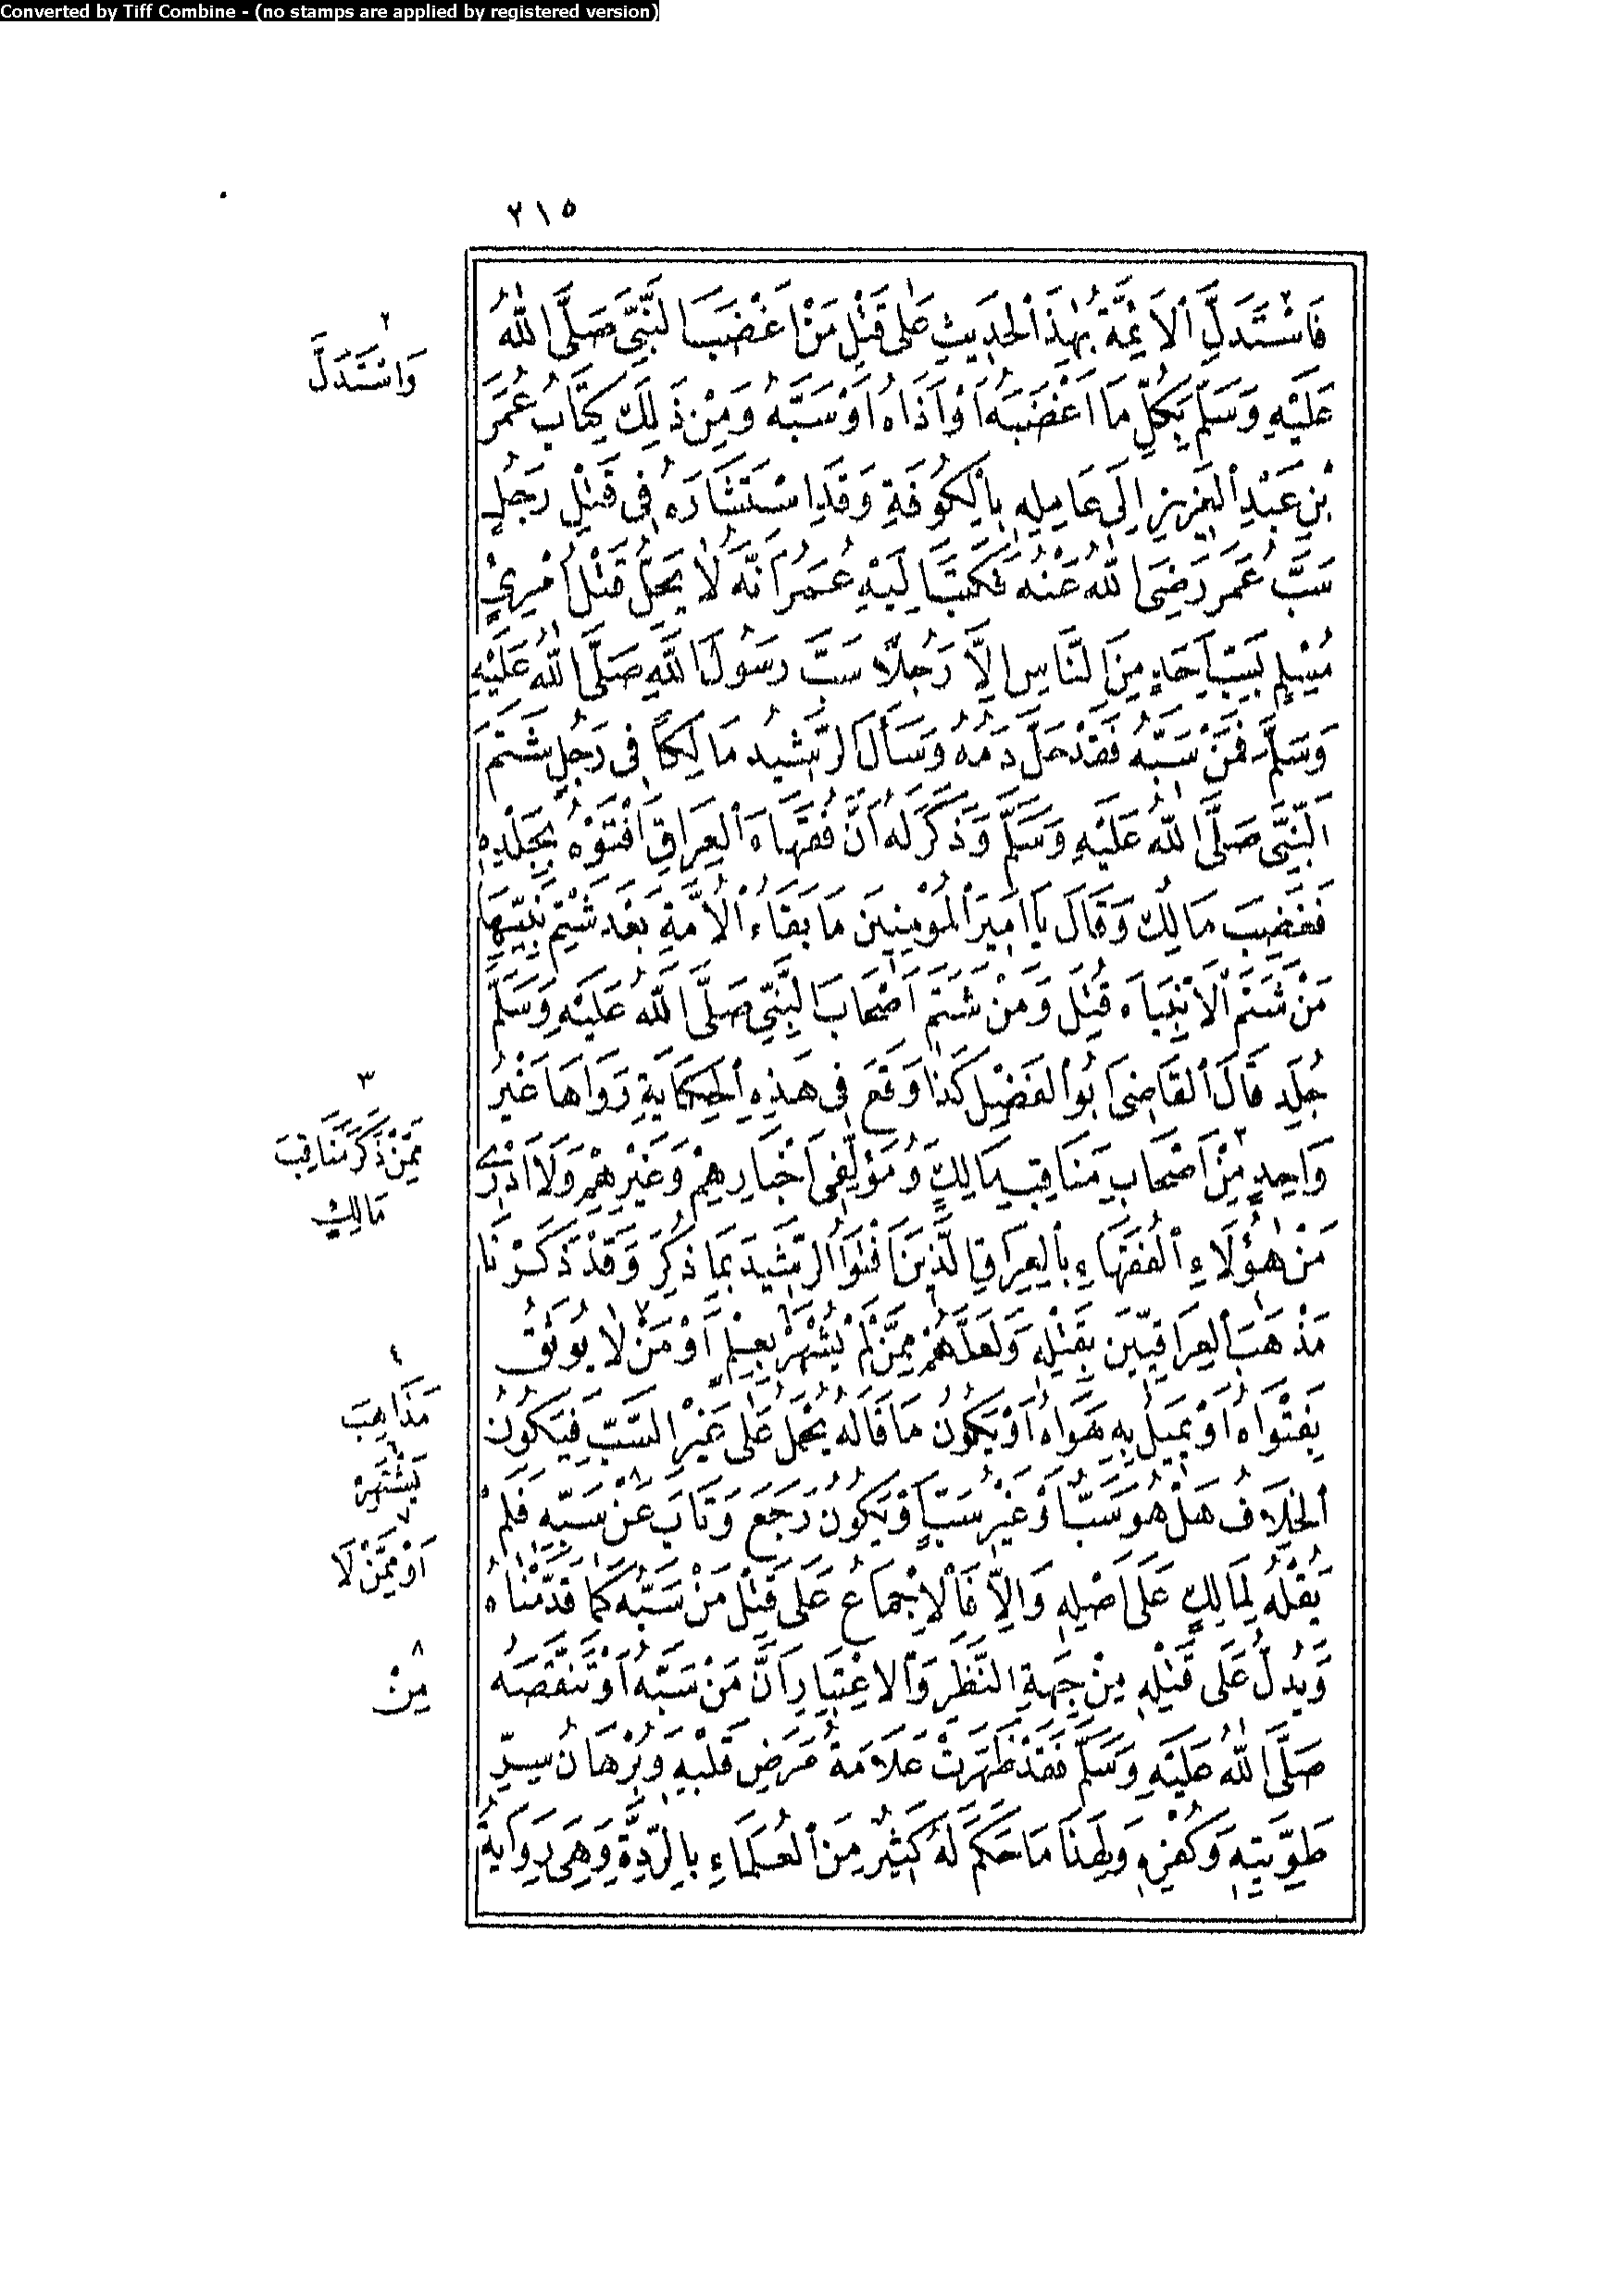 Converted by Tiff Combine - (no stamps are applied by registered version)
٢١٥
فَاسْتَدَلَّ الْأَئِمَّةُ بِهٰذَا الْحَدِيثِ عَلَى قَتْلِ مَنْ أَغْضَبَ النَّبِيَّ صَلَّى اللهُ
عَلَيْهِ وَسَلَّمَ بِكُلِّ مَا أَغْضَبَهُ أَوْ أَذَاهُ أَوْ سَبَّهُ وَمِنْ ذَلِكَ كِتَابُ عُمَرَ
بْنِ عَبْدِ الْعَزِيزِ إِلَى عَامِلِهِ بِالْكُوفَةِ وَقَدِ اسْتَشَارَهُ فِي قَتْلِ رَجُلٍ
سَبَّ عُمَرَ رَضِيَ اللهُ عَنْهُ فَكَتَبَ إِلَيْهِ عُمَرُ أَنَّهُ لَا يَحِلُّ قَتْلُ امْرِئٍ
مُسْلِمٍ بِسَبِّ أَحَدٍ مِنَ النَّاسِ إِلَّا رَجُلًا سَبَّ رَسُولَ اللهِ صَلَّى اللهُ عَلَيْهِ
وَسَلَّمَ فَمَنْ سَبَّهُ فَقَدْ حَلَّ دَمُهُ وَسَأَلَ الرَّشِيدُ مَالِكًا فِي رَجُلٍ شَتَمَ
النَّبِيَّ صَلَّى اللهُ عَلَيْهِ وَسَلَّمَ وَذَكَرَ لَهُ أَنَّ فُقَهَاءَ الْعِرَاقِ أَفْتَوْهُ بِجَلْدِهِ
فَغَضِبَ مَالِكٌ وَقَالَ يَا أَمِيرَ الْمُؤْمِنِينَ مَا بَقَاءُ الْأُمَّةِ بَعْدَ شَتْمِ نَبِيِّهَا
مَنْ شَتَمَ الْأَنْبِيَاءَ قُتِلَ وَمَنْ شَتَمَ أَصْحَابَ النَّبِيِّ صَلَّى اللهُ عَلَيْهِ وَسَلَّمَ
جُلِدَ قَالَ الْقَاضِي أَبُو الْفَضْلِ كَذَا وَقَعَ فِي هَذِهِ الْحِكَايَةِ رَوَاهَا غَيْرُ
وَاحِدٍ مِنْ أَصْحَابِ مَنَاقِبِ مَالِكٍ وَمُؤَلِّفِي أَخْبَارِهِمْ وَغَيْرِهِمْ وَلَا أَدْرِي
مَنْ هٰؤُلَاءِ الْفُقَهَاءِ بِالْعِرَاقِ الَّذِينَ أَفْتَوُا الرَّشِيدَ بِمَا ذُكِرَ وَقَدْ ذَكَرْنَا
مَذْهَبَ الْعِرَاقِيِّينَ بِقَتْلِهِ وَلَعَلَّهُمْ مِمَّنْ لَمْ يُشْهَرْ بِعِلْمٍ أَوْ مَنْ لَا يُوثَقُ
بِفَتْوَاهُ أَوْ يَمِيلُ بِهِ هَوَاهُ أَوْ يَكُونُ مَا قَالَهُ يُحْمَلُ عَلَى غَيْرِ السَّبِّ فَيَكُونُ
الْخِلَافُ هَلْ هُوَ سَبٌّ أَوْ غَيْرُ سَبٍّ أَوْ يَكُونُ رَجَعَ وَتَابَ عَنْ سَبِّهِ فَلَمْ
يَقُلْهُ لِمَالِكٍ عَلَى أَصْلِهِ وَإِلَّا فَالْإِجْمَاعُ عَلَى قَتْلِ مَنْ سَبَّهُ كَمَا قَدَّمْنَاهُ
وَيَدُلُّ عَلَى قَتْلِهِ مِنْ جِهَةِ النَّظَرِ وَالْاعْتِبَارِ أَنَّ مَنْ سَبَّهُ أَوْ تَنَقَّصَهُ
صَلَّى اللهُ عَلَيْهِ وَسَلَّمَ فَقَدْ ظَهَرَتْ عَلَامَةُ مَرَضِ قَلْبِهِ وَبُرْهَانُ سِرِّ
طَوِيَّتِهِ وَكُفْرِهِ وَلِهَذَا مَا حَكَمَ لَهُ كَثِيرٌ مِنَ الْعُلَمَاءِ بِالرِّدَّةِ وَهِيَ رِوَايَةُ
٢
وَاسْتَدَلَّ
٣
مِمَّنْ ذَكَرَ مَنَاقِبَ
مَالِكٍ
٤
مَذَاهِبَ
٦
يَشْتَهِرْ
٧
أَوْ مِمَّنْ لَا
٨
مِنْ